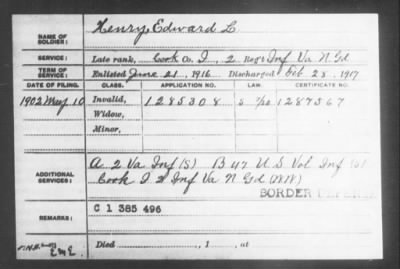 NAME OF SOLDIER: Henry, Edward L
SERVICE: Late rank, Cook Co. I, 2 Reg't Inf Va N Gd
TERM OF SERVICE: Enlisted June 21, 1916 Discharged Feb 28, 1917
DATE OF FILING. CLASS. APPLICATION NO. LAW. CERTIFICATE NO.
1902 May 10 Invalid, 1285308 1287567
Widow,
Minor,
ADDITIONAL SERVICES: A 2 Va Inf (S) B 47 U.S. Vol Inf (S)
Cook I 2 Inf Va N Gd
BORDER DEFENSE
REMARKS: C 1 385 496
Died , 1 , at